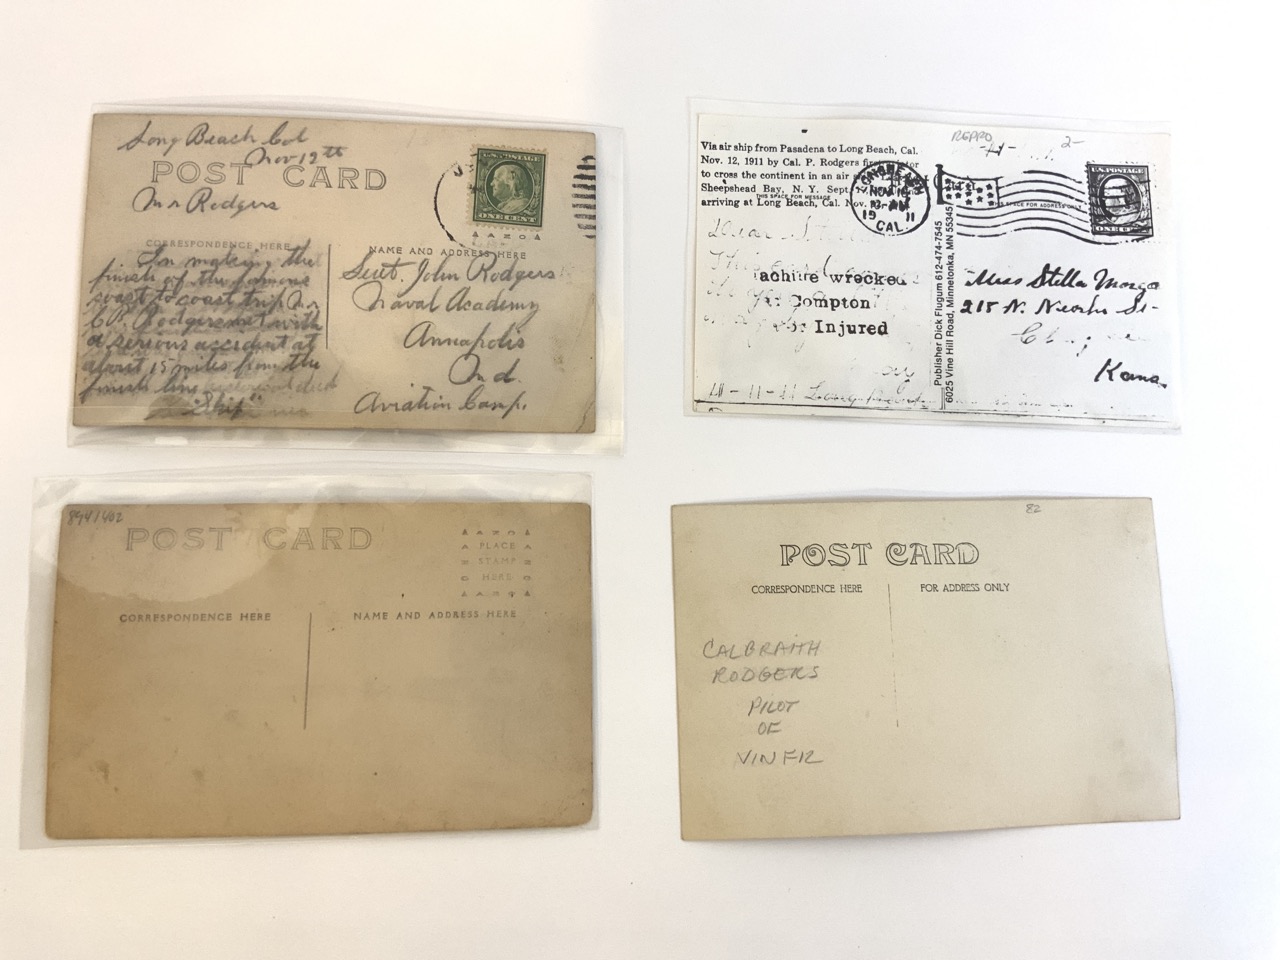 Long Beach Cal
Nov 12th
POST CARD
Mr Rodgers
CORRESPONDENCE HERE
In making the
finish of the famous
coast to coast trip Mr
C.P. Rodgers met with
a serious accident at
about 15 miles from the
finish line
"Ship"
U.S. POSTAGE
ONE CENT
AZO
NAME AND ADDRESS HERE
Lieut. John Rodgers
Naval Academy
Annapolis
Md.
Aviation Camp.
REPRO
2-
Via air ship from Pasadena to Long Beach, Cal.
Nov. 12, 1911 by Cal. P. Rodgers first
to cross the continent in an air
Sheepshead Bay, N. Y. Sept.
THIS SPACE FOR MESSAGE
arriving at Long Beach, Cal. Nov.
LONG BEACH
NOV
19 11
CAL.
THIS SPACE FOR ADDRESS ONLY
U.S. POSTAGE
Dear
achine wrecked
Compton
Injured
Publisher Dick Flugum 612-474-7545
6025 Vine Hill Road, Minnetonka, MN 55345
Miss Stella
215 N. Neosho St-
Kans.
894/402
POST CARD
AZO
PLACE
STAMP
HERE
AZO
CORRESPONDENCE HERE
NAME AND ADDRESS HERE
82
POST CARD
CORRESPONDENCE HERE
FOR ADDRESS ONLY
CALBRAITH
RODGERS
PILOT
OF
VIN FIZ